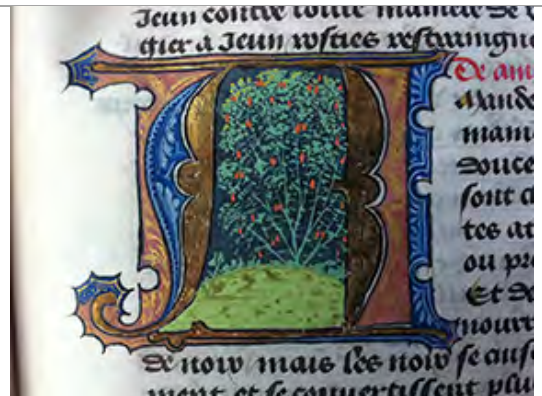 Jeun contre toute maniere de
gier a Jeun rosties restraingne
De am
Mande
mani
douce
sont
tes at
ou pre
Et de
nourr
de now mais les now se cuise
ment et se convertissent plus